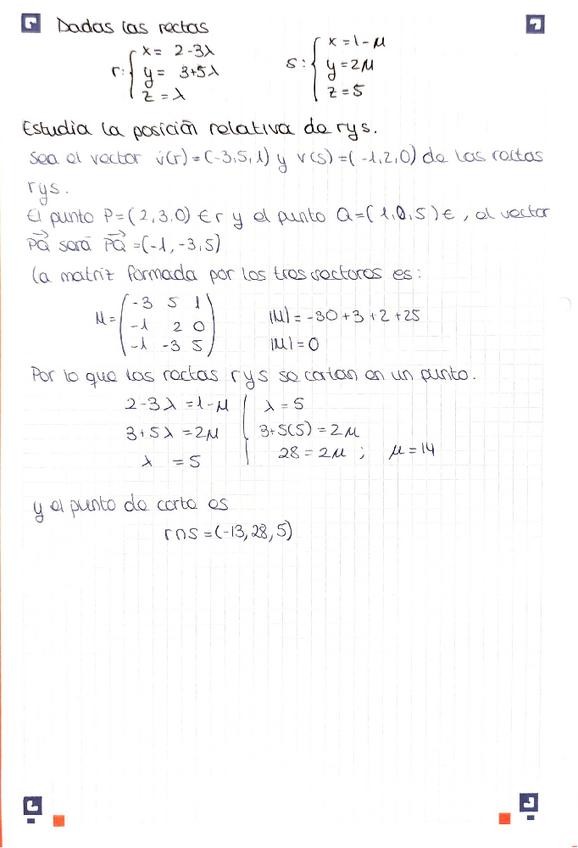 Dadas las rectas
r: { x = 2-3λ
y = 3+5λ
z = λ
s: { x = 1-μ
y = 2μ
z = 5
Estudia la posición relativa de r y s.
Sea el vector v(r)=(-3,5,1) y v(s)=(-1,2,0) de las rectas
r y s.
El punto P=(2,3,0) ∈ r y el punto Q=(1,0,5) ∈, el vector
PQ será PQ=(-1,-3,5)
La matriz formada por los tres vectores es:
M= ( -3 5 1
-1 2 0
-1 -3 5 )
|M| = -30+3+2+25
|M| = 0
Por lo que las rectas r y s se cortan en un punto.
2-3λ = 1-μ
3+5λ = 2μ
λ = 5
λ = 5
3+5(5) = 2μ
28 = 2μ ; μ = 14
y el punto de corte es
r∩s = (-13, 28, 5)